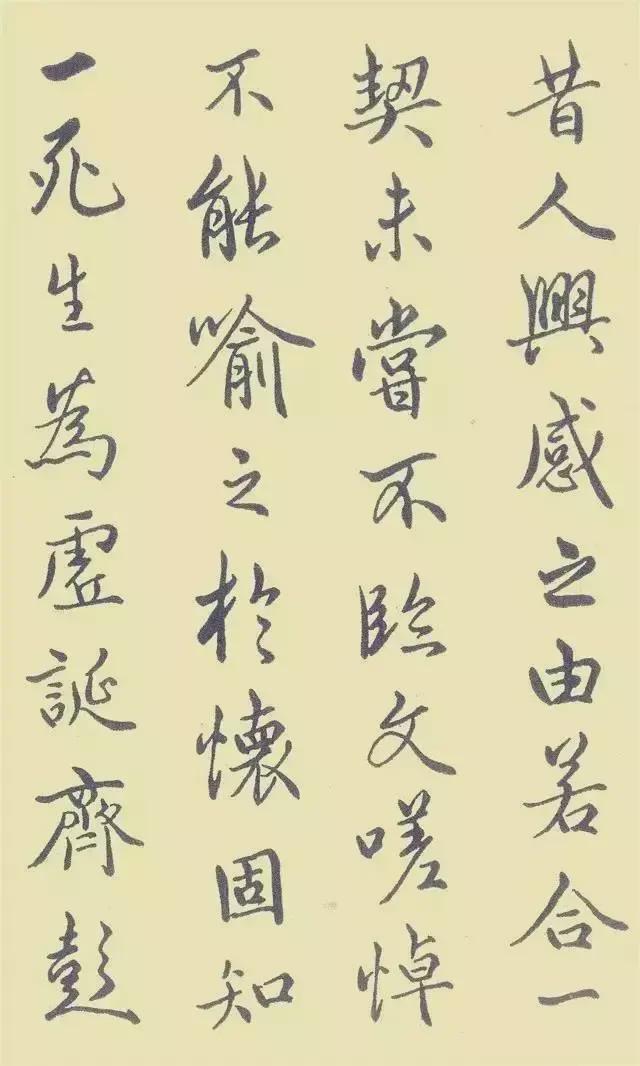 昔人興感之由若合一
契未嘗不臨文嗟悼
不能喻之於懷固知
一死生為虛誕齊彭